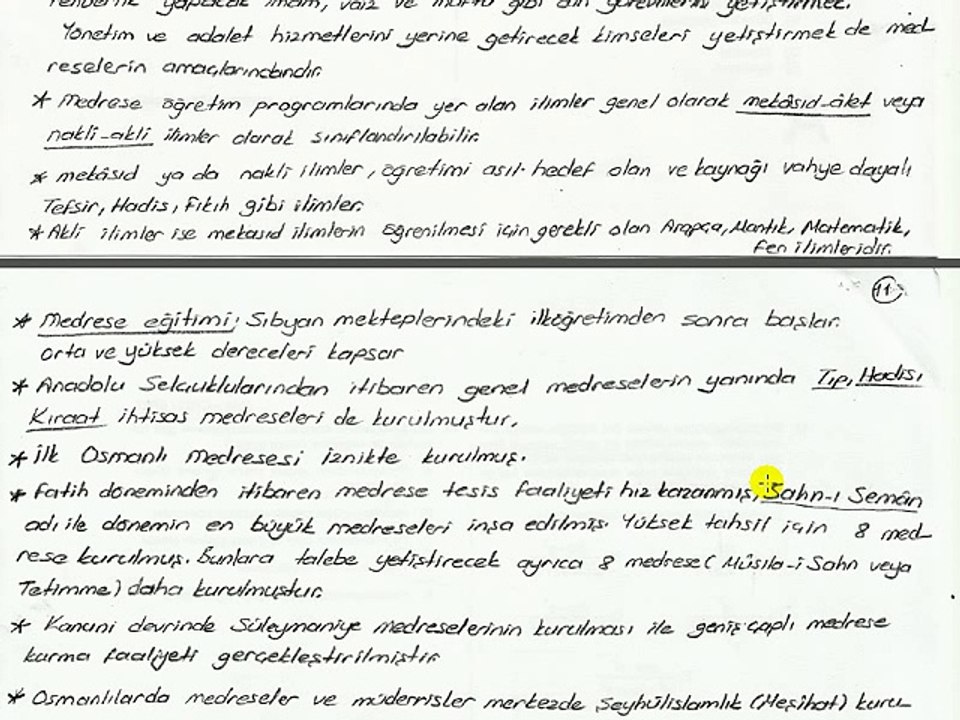 rehberlik yapacak imam, vaiz ve müftü gibi din görevlilerini yetiştirmek.
Yönetim ve adalet hizmetlerini yerine getirecek kimseleri yetiştirmek de med
reselerin amaçlarındandır.
* Medrese öğretim programlarında yer alan ilimler genel olarak mekâsıd-âlet veya
nakli-akli ilimler olarak sınıflandırılabilir.
* mekâsıd ya da nakli ilimler, öğretimi asıl hedef olan ve kaynağı vahye dayalı
Tefsir, Hadis, Fıkıh gibi ilimler.
* Akli ilimler ise mekasıd ilimlerin öğrenilmesi için gerekli olan Arapça, Mantık, Matematik,
fen ilimleridir.
11
* Medrese eğitimi; Sıbyan mekteplerindeki ilköğretimden sonra başlar.
orta ve yüksek dereceleri kapsar
* Anadolu Selçuklularından itibaren genel medreselerin yanında Tıp, Hadis,
Kıraat ihtisas medreseleri de kurulmuştur.
* İlk Osmanlı medresesi iznikte kurulmuş.
* Fatih döneminden itibaren medrese tesis faaliyeti hız kazanmış, Sahn-ı Semân
adı ile dönemin en büyük medreseleri inşa edilmiş. Yüksek tahsil için 8 med
rese kurulmuş. Bunlara talebe yetiştirecek ayrıca 8 medrese (Mûsıla-i Sahn veya
Tetimme) daha kurulmuştur.
* Kanuni devrinde Süleymaniye medreselerinin kurulması ile geniş çaplı medrese
kurma faaliyeti gerçekleştirilmiştir
* Osmanlılarda medreseler ve müderrisler merkezde Şeyhülislamlık (Meşihat) kuru